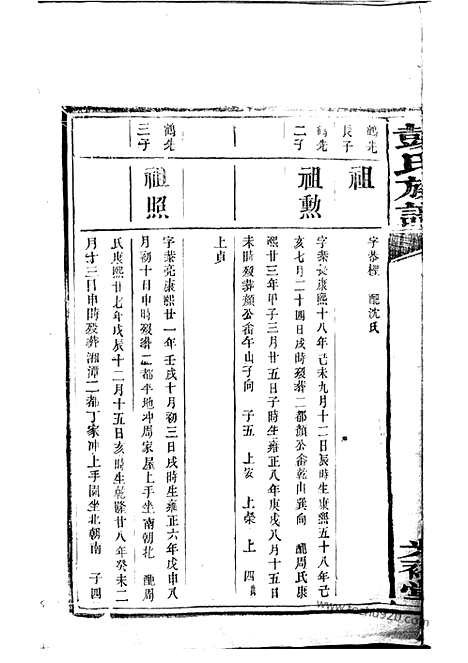 彭氏族譜
鶴先
長子
祖
字恭檉 配沈氏
鶴先
二子
祖勲
字葉長康熙十八年己未九月十二日辰時生康熙五十八年己
亥七月二十四日戌時歿葬二都顏公畬乾山巽向 配周氏康
熙廿三年甲子三月廿五日子時生雍正八年庚戌八月十五日
未時歿葬顏公畬午山子向 子五 上安 上榮 上 四
上貞
鶴先
三子
祖照
字葉亮康熙廿一年壬戌十月初三日戌時生雍正六年戊申八
月初十日申時歿葬二都平地冲周家屋上手坐南朝北 配周
氏康熙廿七年戊辰十二月十五日亥時生乾隆廿八年癸未二
月十三日申時歿葬湘潭二都丁家冲上手園坐北朝南 子四
堂